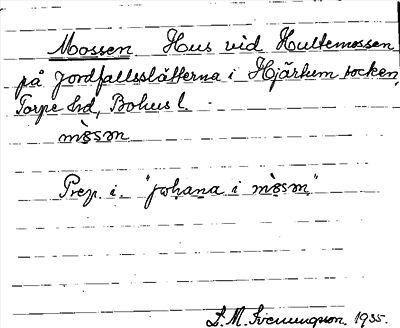 Mossen Hus vid Hultemossen
på Jordfallsslätterna i Hjärtum socken,
Torpe hd, Bohus l.
mòsən
Prep. i. "johana i mòsən"
S. M. Svenungsson. 1935.